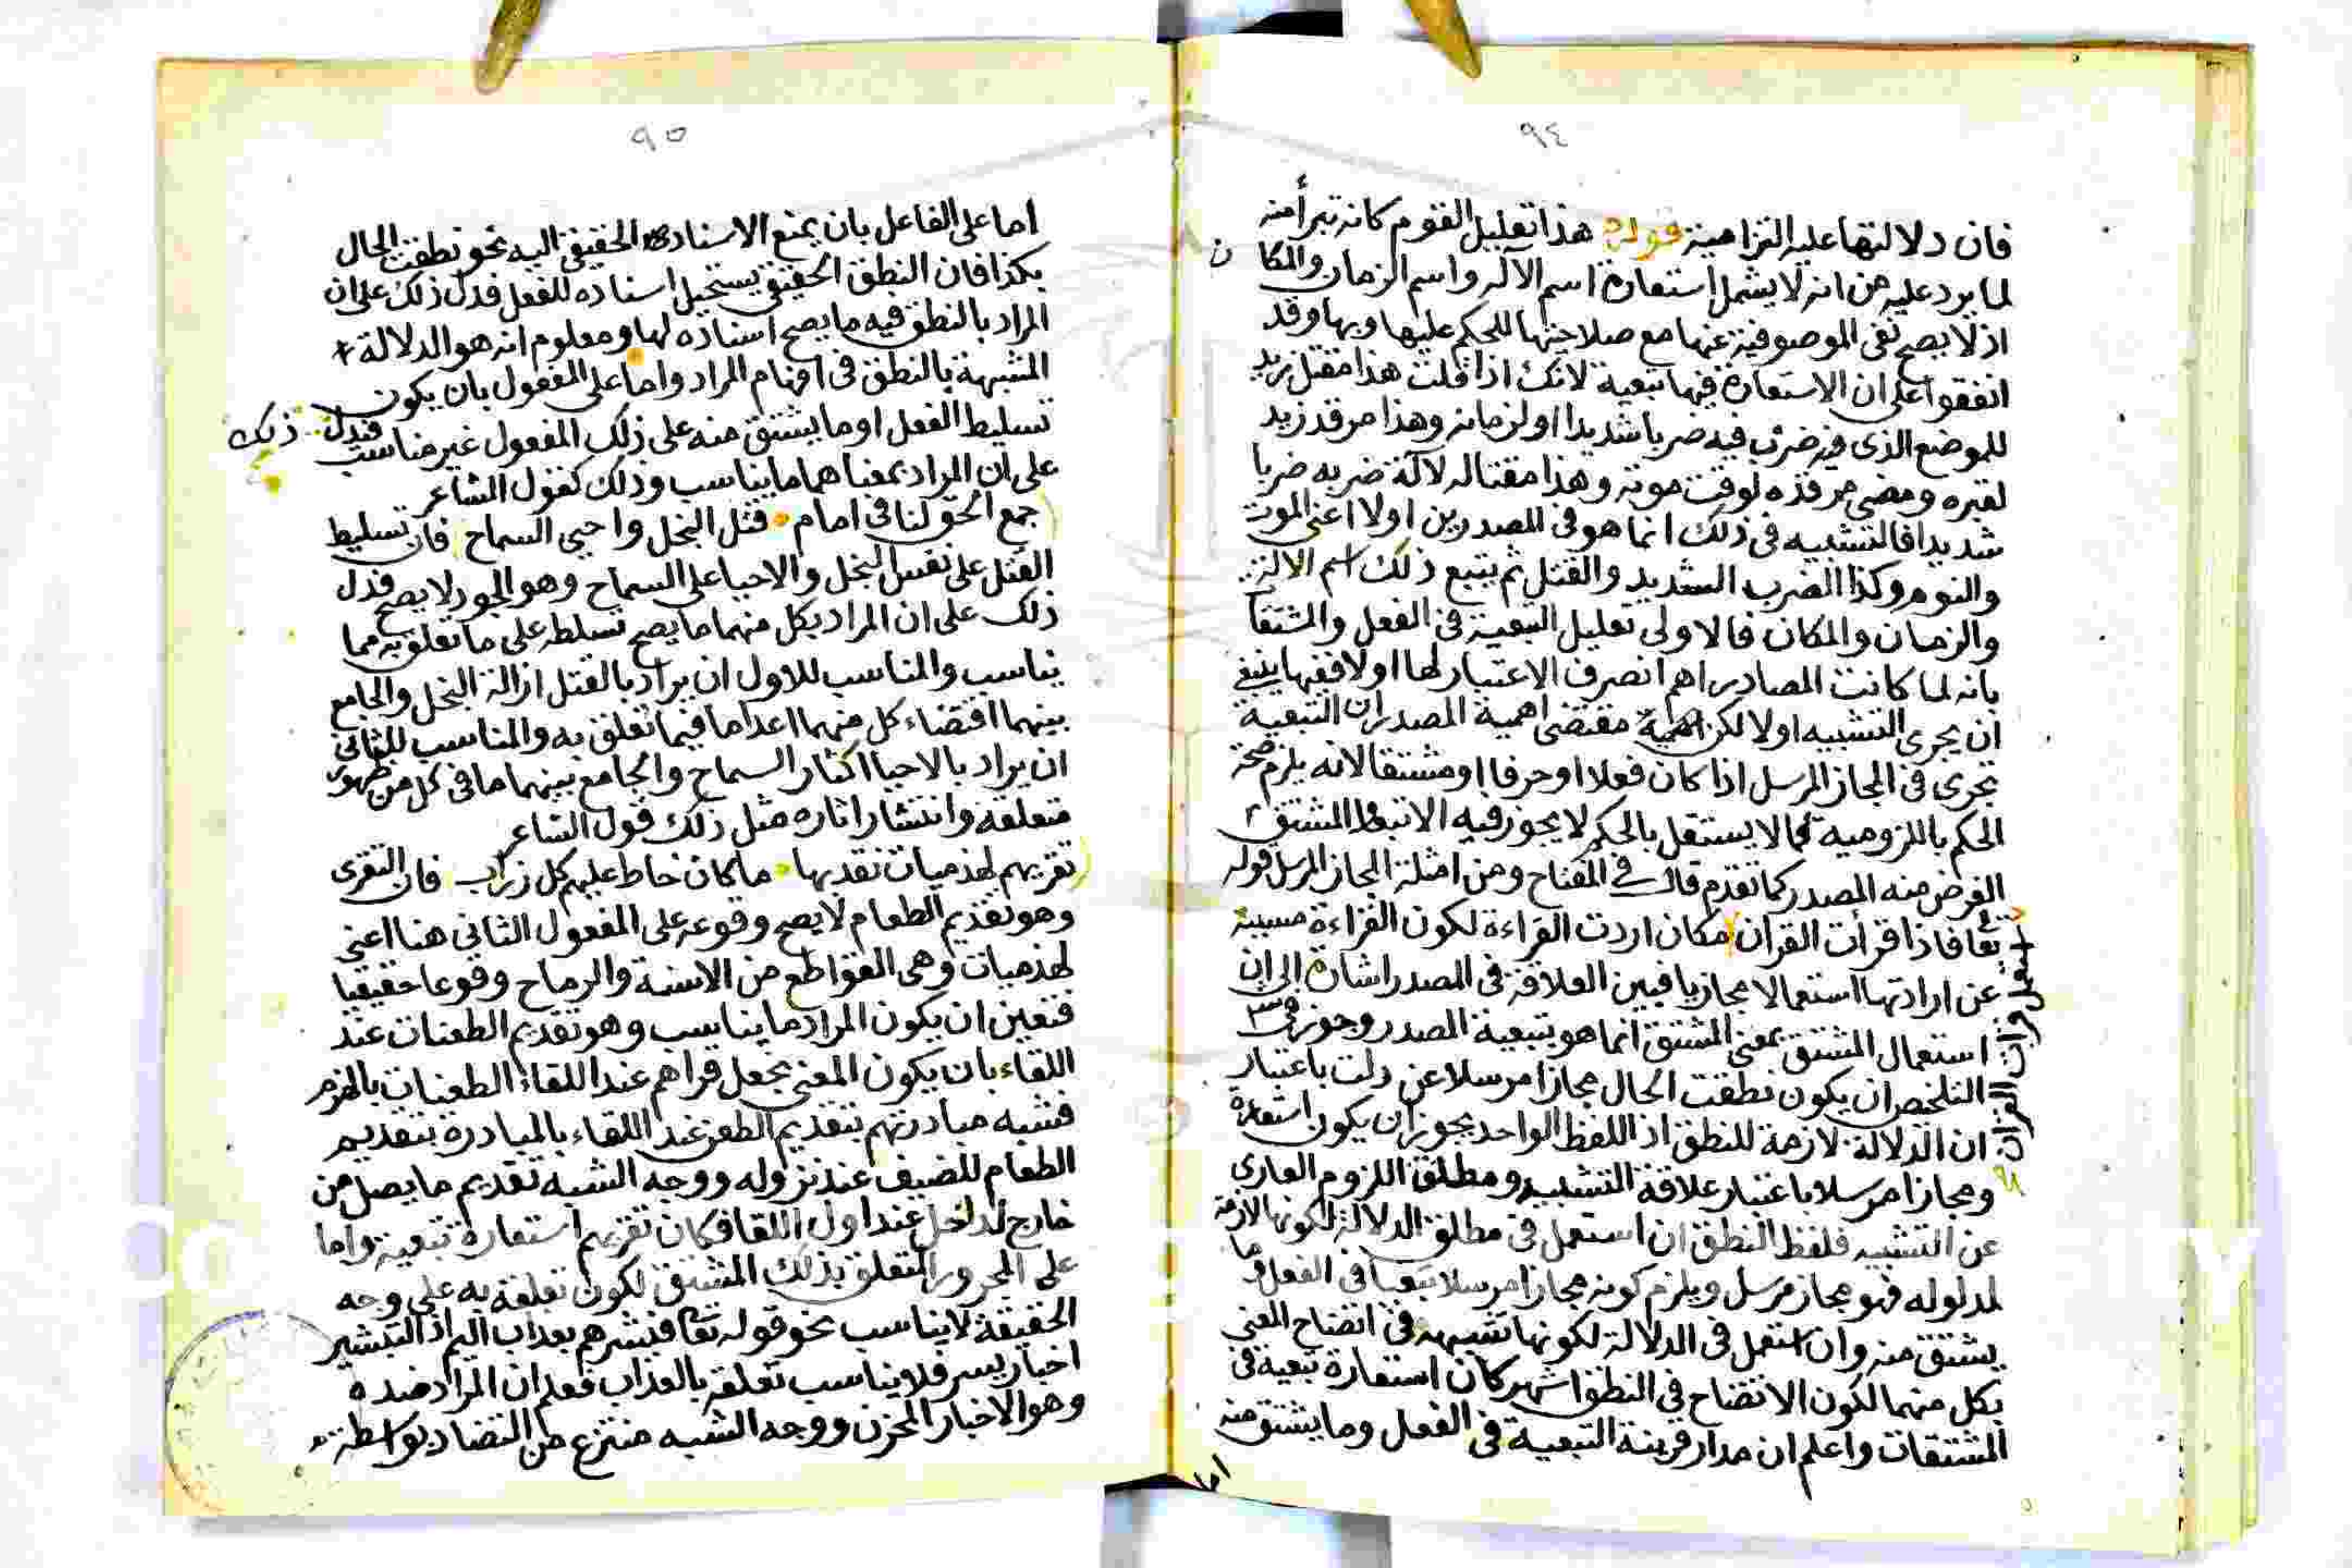 ٩٤
فان دلالتها عليه التزامية قوله هذا تعليل القوم كانه تبرأ منه
لما يرد عليه من انه لا يشمل استعارة اسم الآله واسم الزمان والمكان
اذ لا يصح نفى الموصوفية عنها مع صلاحيتها للحكم عليها وبها وقد
اتفقوا على ان الاستعارة فيها تبعية لانك اذا قلت هذا مقتل زيد
للموضع الذى فيه ضرب فيه ضربا شديدا او لزمانه وهذا مرقد زيد
لقبره ومضى مرقده لوقت موته وهذا مقتاله لآلة ضربه ضربا
شديدا فالتشبيه فى ذلك انما هو فى المصدرين اولا اعنى الموت
والنوم وكذا الضرب الشديد والقتل ثم يتبع ذلك اسم الالة
والزمان والمكان فالاولى تعليل التبعية فى الفعل والمشتقا
بانه لما كانت المصادر اهم انصرف الاعتبار لها اولا ففيها ينبغى
ان يجرى التشبيه اولا لكن اهمية مقتضى اهمية المصدر ان التبعية
تجرى فى المجاز المرسل اذا كان فعلا او حرفا او مشتقا لانه يلزم صحة
الحكم بالملزومية فما لا يستقل بالحكم لا يجوز فيه الا تبعا والمشتق
الغرض منه المصدر كما تقدم قال فى المفتاح ومن امثلة المجاز المرسل قوله
تعا فاذا قرأت القرآن مكان اردت القراءة لكون القراءة مسببة
عن ارادتها استعمالا مجازيا فبين العلاقة فى المصدر اشارة الى ان
استعمال المشتق بمعنى المشتق انما هو بتبعية المصدر وجوز فى
التلخيص ان يكون نطقت الحال مجازا مرسلا عن دلت باعتبار
ان الدلالة لازمة للنطق اذ اللفظ الواحد يجوز ان يكون استعارة
ومجازا مرسلا باعتبار علاقة التشبيه ومطلق اللزوم العارى
عن التشبيه فلفظ النطق ان استعمل فى مطلق الدلالة لكونها لازمة
لمدلوله فهو مجاز مرسل ويلزم كونه مجازا مرسلا تبعيا فى الفعل وما
يشتق منه وان استعمل فى الدلالة لكونها تشبيهه فى اتضاح المعنى
بكل منهما لكون الاتضاح فى النطق اشهر كان استعارة تبعية فى
المشتقات واعلم ان مدار قرينة التبعية فى الفعل وما يشتق منه
اما
٩٥
اما على الفاعل بان يمنع الاسناد الحقيقى اليه نحو نطقت الحال
بكذا فان النطق الحقيقى يستحيل اسناده للفعل فدل ذلك على ان
المراد بالنطق فيه ما يصح اسناده لها ومعلوم انه هو الدلالة
المشبهة بالنطق فى افهام المراد واما على المفعول بان يكون
تسليط الفعل او ما يشتق منه على ذلك المفعول غير مناسب فدل ذلك
على ان المراد بمعناهما ما يناسب وذلك كقول الشاعر
جمع الحق لنا فى امام قتل البخل واحيى السماح فان تسليط
القتل على نفس البخل والاحيا على السماح وهو الجود لا يصح فدل
ذلك على ان المراد بكل منهما ما يصح تسلطه على ما تعلق به مما
يناسب والمناسب للاول ان يراد بالقتل ازالة البخل والجامع
بينهما اقتضاء كل منهما اعداما فيما تعلق به والمناسب للثانى
ان يراد بالاحيا اكثار السماح والجامع بينهما ما فى كل من ظهور
متعلقه وانتشار اثاره مثل ذلك قول الشاعر
نقريهم لهذميات نقد بها ما كان خاط عليهم كل زراد فان القرى
وهو تقديم الطعام لا يصح وقوعه على المفعول الثانى هنا اعنى
لهذميات وهى القواطع من الاسنة والرماح وقوعا حقيقيا
فتعين ان يكون المراد ما يناسب وهو تقديم الطعنات عند
اللقاء بان يكون المعنى نجعل قراهم عند اللقاء الطعنات باللهزم
فشبه مبادرتهم بتقديم الطعن عند اللقاء بالمبادرة بتقديم
الطعام للضيف عند نزوله ووجه الشبه تقديم ما يصل من
خارج لداخل عند اول اللقا فكان نقريهم استعارة تبعية واما
على المجرور المتعلق بذلك المشتق لكون تعلقه به على وجه
الحقيقة لا يناسب نحو قوله تعا فبشرهم بعذاب اليم اذ التبشير
اخبار يسر فلا يناسب تعلقه بالعذاب فعلم ان المراد ضده
وهو الاخبار المحزن ووجه الشبه منتزع من التضاد بواسطة